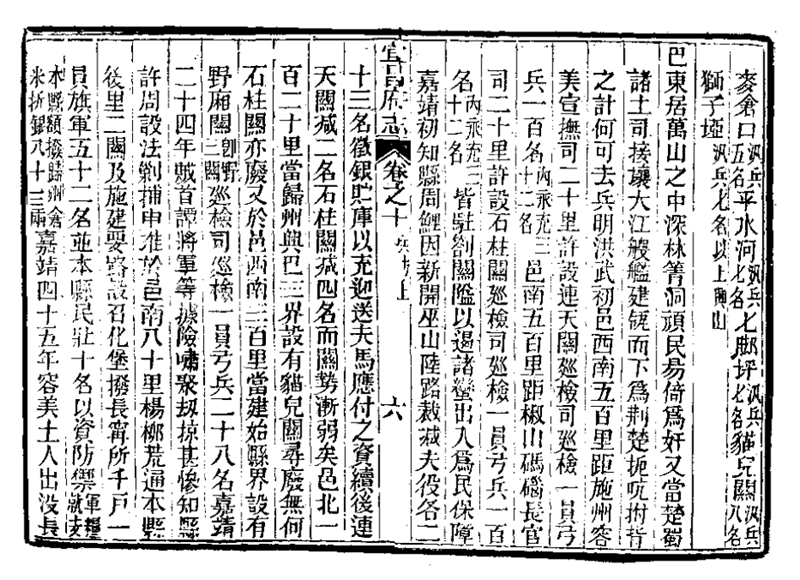 麥倉口汛兵五名平水河汛兵七名七郎坪汛兵七名貓兒關汛兵八名
獅子埡汛兵七名以上興山
巴東居萬山之中深林箐洞頑民易倚爲奸又當楚蜀
諸土司接壤大江艘艦建瓴而下爲荆楚扼吭拊背
之計何可去兵明洪武初邑西南五百里距施州容
美宣撫司二十里許設連天關廵檢司廵檢一員弓
兵一百名內永充三十二名邑南五百里距椒山碼碯長官
司二十里許設石柱關廵檢司廵檢一員弓兵一百
名內永充三十二名皆駐劄關隘以遏諸蠻出入爲民保障
嘉靖初知縣周鯉因新開巫山陸路裁減夫役各二
宜昌府志 卷之十 兵防上 六
十三名徵銀貯庫以充迎送夫馬應付之資續後連
天關減二名石柱關減四名而關勢漸弱矣邑北一
百二十里當歸州興巴三界設有貓兒關尋廢無何
石柱關亦廢又於邑西南三百里當建始縣界設有
野廂關即野三關廵檢司廵檢一員弓兵二十八名嘉靖
二十四年賊首譚將軍等據險嘯聚刼掠甚慘知縣
許周設法剿捕申准於邑南八十里楊柳荒通本縣
後里二關及施建要路設召化堡撥長寧所千戶一
員旗軍五十二名並本縣民壯十名以資防禦軍糧就支
本縣額撥歸州倉米折銀八十三兩嘉靖四十五年容美土人出没長